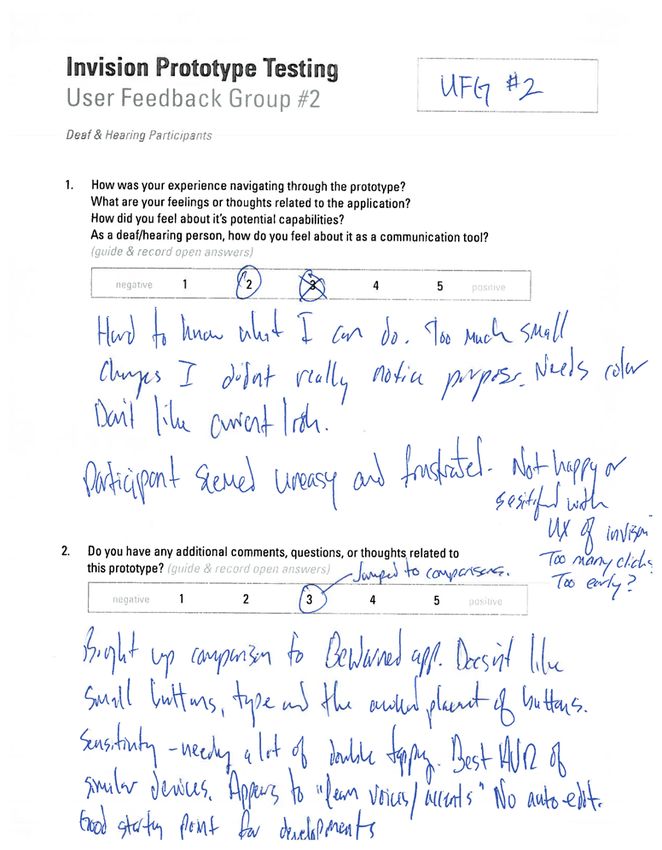 Invision Prototype Testing
User Feedback Group #2
UFG #2
Deaf & Hearing Participants
1. How was your experience navigating through the prototype?
What are your feelings or thoughts related to the application?
How did you feel about it's potential capabilities?
As a deaf/hearing person, how do you feel about it as a communication tool?
(guide & record open answers)
negative 1 2 3 4 5 positive
Hard to know what I can do. Too much small
changes I didnt really notice purpose. Needs color
Don't like current look.
Participant seemed uneasy and frustrated. Not happy or
with
UX of invision
Too many clicks
Too early?
2. Do you have any additional comments, questions, or thoughts related to
this prototype? (guide & record open answers)
Jumped to comparisons.
negative 1 2 3 4 5 positive
Bright up comparison to BeWarned app. Doesn't like
small buttons, type and the placement of buttons.
Sensitivity - a lot of double tapping. Best of
similar devices. Appears to "learn voices/accents" No auto-edit.
Good starting point for developments